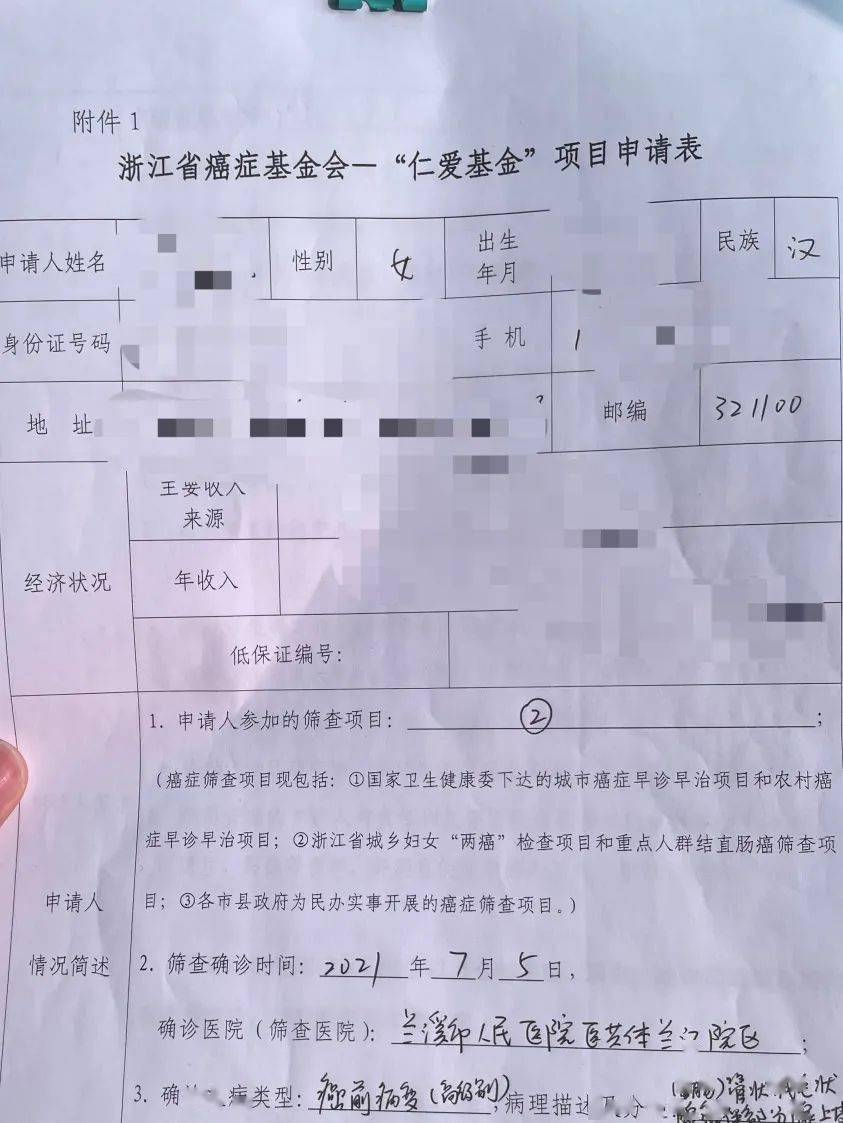 附件1
浙江省癌症基金会—“仁爱基金”项目申请表
申请人姓名 性别 女 出生年月 民族 汉
身份证号码 手机 1
地 址 邮编 321100
经济状况 主要收入来源
年收入
低保证编号：
申请人情况简述
1. 申请人参加的筛查项目： ② ；
（癌症筛查项目现包括：①国家卫生健康委下达的城市癌症早诊早治项目和农村癌
症早诊早治项目；②浙江省城乡妇女“两癌”检查项目和重点人群结直肠癌筛查项
目；③各市县政府为民办实事开展的癌症筛查项目。）
2. 筛查确诊时间：2021年7月5日，
确诊医院（筛查医院）：兰溪市人民医院医共体兰江院区；
3. 确 症类型：癌前病变（高级别），病理描述及分